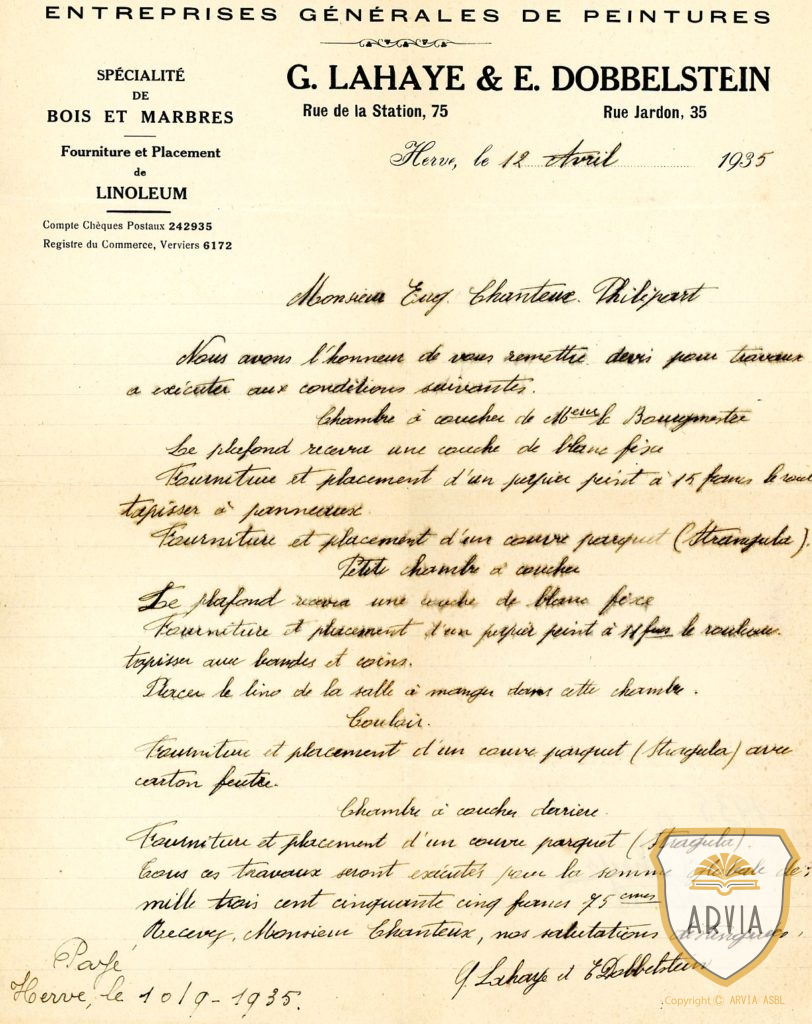 ENTREPRISES GÉNÉRALES DE PEINTURES
SPÉCIALITÉ
DE
BOIS ET MARBRES
Fourniture et Placement
de
LINOLEUM
Compte Chèques Postaux 242935
Registre du Commerce, Verviers 6172
G. LAHAYE & E. DOBBELSTEIN
Rue de la Station, 75 Rue Jardon, 35
Herve, le 12 Avril 1935
Monsieur Eug. Chanteux. Philipart
Nous avons l'honneur de vous remettre devis pour travaux
a exécuter aux conditions suivantes.
Chambre à coucher de Meur le Bourgmestre
Le plafond recevra une couche de blanc fixe
Fourniture et placement d'un papier peint à 15 francs le
tapisser à panneaux
Fourniture et placement d'un couvre parquet (Strangula).
Petite chambre à coucher
Le plafond recevra une couche de blanc fixe
Fourniture et placement d'un papier peint à 11 frs le rouleau.
tapisser avec bandes et coins.
Placer le lino de la salle à manger dans cette chambre.
Couloir.
Fourniture et placement d'un couvre parquet (Stragula) avec
carton feutre.
Chambre à coucher dariere.
Fourniture et placement d'un couvre parquet (Stragula).
Tous ces travaux seront exécutés pour la somme globale de:
mille trois cent cinquante cinq francs 75 cmes
Recevez, Monsieur Chanteux, nos salutations distinguées.
G. Lahaye et E Dobbelstein
Payé
Herve, le 10/9-1935.
ARVIA
Copyright © ARVIA ASBL